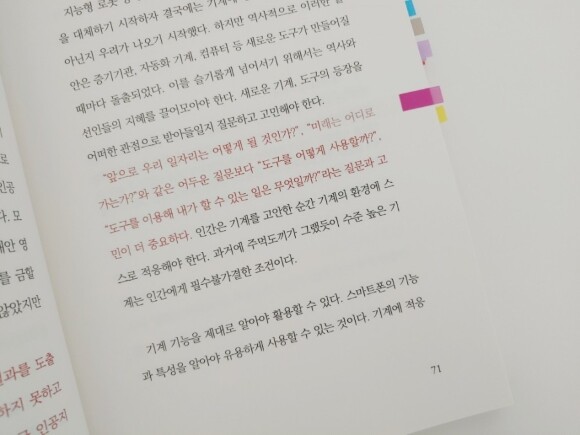 모
인공
다. 모
해안 영
를 금할
않았지만
결과를 도출
하지 못하고
인공지
지능형 로봇
을 대체하기 시작하자 결국에는 기계에
아닌지 우려가 나오기 시작했다. 하지만 역사적으로 이러한
안은 증기기관, 자동화 기계, 컴퓨터 등 새로운 도구가 만들어질
때마다 돌출되었다. 이를 슬기롭게 넘어서기 위해서는 역사와
선인들의 지혜를 끌어모아야 한다. 새로운 기계, 도구의 등장을
어떠한 관점으로 받아들일지 질문하고 고민해야 한다.
“앞으로 우리 일자리는 어떻게 될 것인가?”, “미래는 어디로
가는가?”와 같은 어두운 질문보다 “도구를 어떻게 사용할까?”,
“도구를 이용해 내가 할 수 있는 일은 무엇일까?”라는 질문과 고
민이 더 중요하다. 인간은 기계를 고안한 순간 기계의 환경에 스
스로 적응해야 한다. 과거에 주먹도끼가 그랬듯이 수준 높은 기
계는 인간에게 필수불가결한 조건이다.
기계 기능을 제대로 알아야 활용할 수 있다. 스마트폰의 기능
과 특성을 알아야 유용하게 사용할 수 있는 것이다. 기계에 적응
71